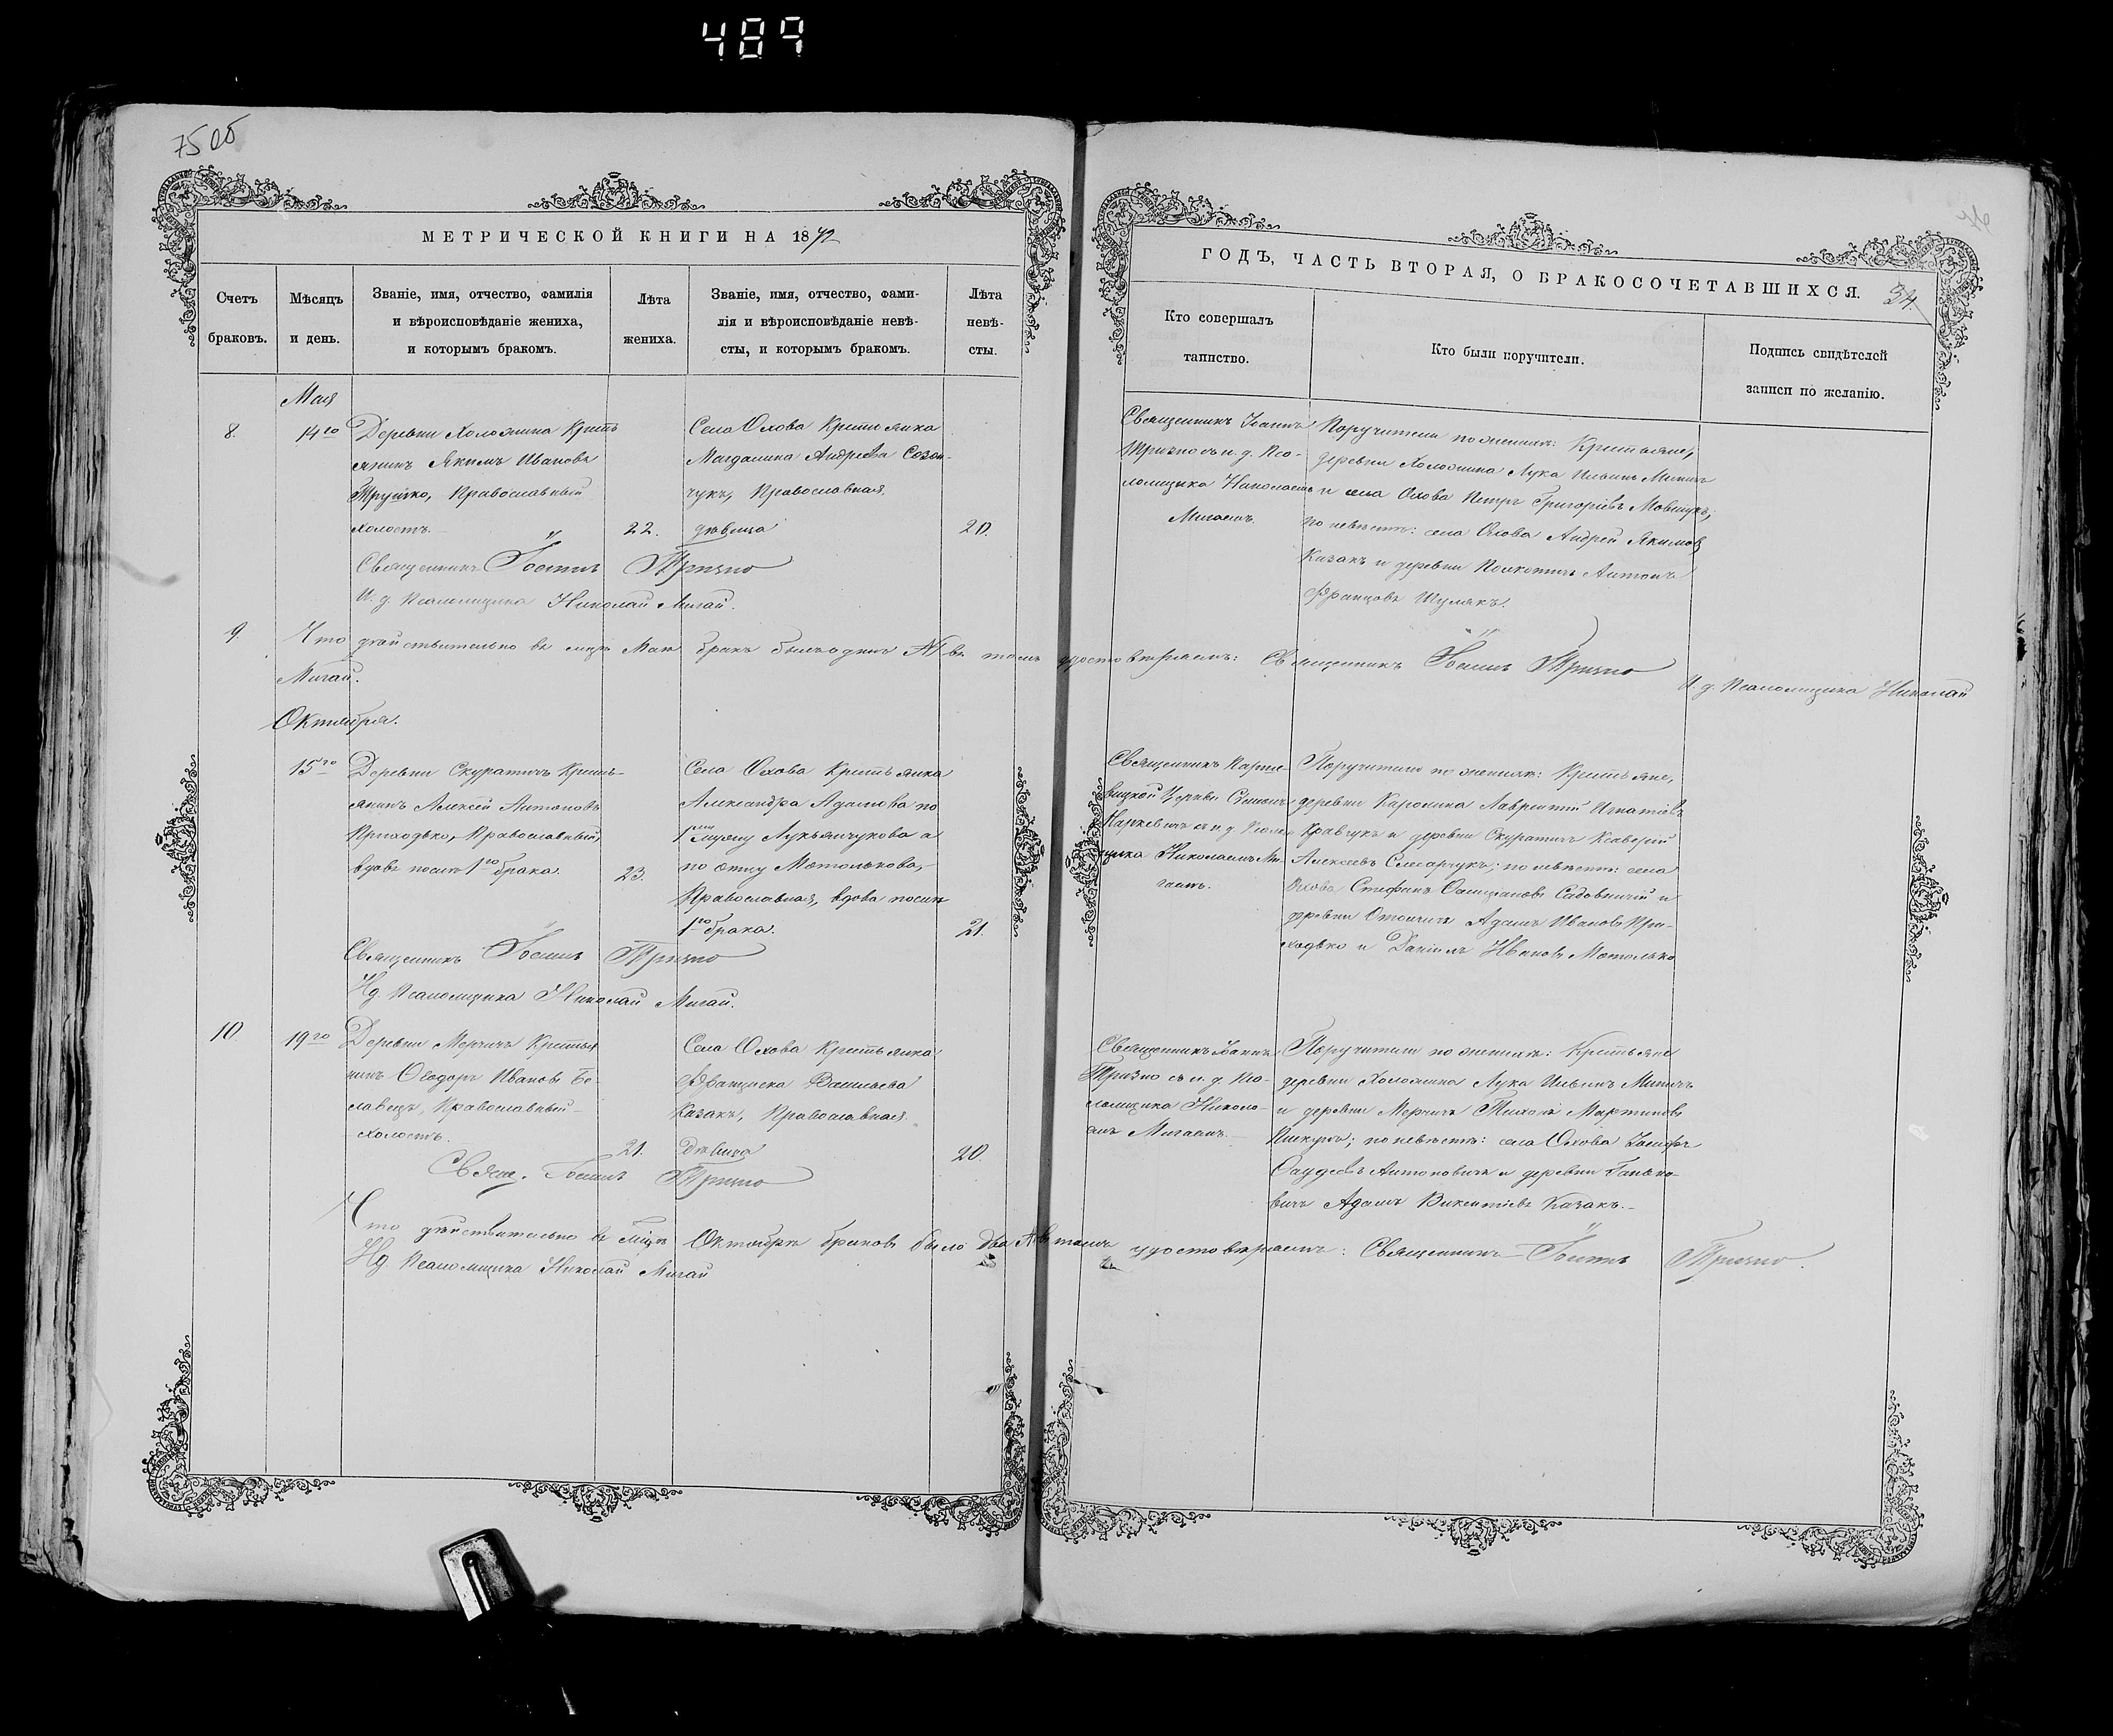 489
75 об
МЕТРИЧЕСКОЙ КНИГИ НА 1872
Счетъ браковъ.
Мѣсяцъ и день.
Званіе, имя, отчество, фамилія
и вѣроисповѣданіе жениха,
и которымъ бракомъ.
Лѣта жениха.
Званіе, имя, отчество, фами-
лія и вѣроисповѣданіе невѣ-
сты, и которымъ бракомъ.
Лѣта невѣ-
сты.
Мая
8.
14го
Деревни Холожина Кресть
янинъ Якимъ Ивановъ
Трушко, Православный
холостъ.
22.
Села Охова Крестьянка
Магдалина Андреева Созон-
чукъ, Православная,
дѣвица
20.
Священникъ Іоаннъ Тризно
И. д. Псаломщика Николай Мигай.
9.
Что дѣйствительно въ мцѣ Маѣ бракъ былъ одинъ №1 въ томъ удостовѣряемъ: Священникъ Іоаннъ Тризно
И. д. Псаломщика Николай
Мигай.
Октября.
15го
Деревни Скуратичъ Кресть-
янинъ Алексѣй Антоновъ
Приходько, Православный,
вдовъ послѣ 1го брака.
23.
Села Охова Крестьянка
Александра Адамова по
1му мужу Лукьянчукова а
по отцу Мотолькова,
Православная, вдова послѣ
1го брака.
21.
Священникъ Іоаннъ Тризно
Ид. Псаломщика Николай Мигай.
10
19го
Деревни Мерчичъ Крестья
нинъ Ѳеодоръ Ивановъ Бе-
славецъ, Православный
холостъ.
21.
Села Охова Крестьянка
Францишка Васильева
Казакъ, Православная.
Дѣвица
20
Свящ. Іоаннъ Тризно
Что дѣйствительно въ мцѣ Октябрѣ браковъ было два №2 въ томъ удостовѣряемъ: Священникъ Іоаннъ Тризно.
Ид. Псаломщика Николай Мигай
ГОДЪ, ЧАСТЬ ВТОРАЯ, О БРАКОСОЧЕТАВШИХСЯ.
34.
Кто совершалъ
таинство.
Кто были поручители.
Подпись свидѣтелей
записи по желанію.
Священникъ Іоаннъ
Тризно съ и. д. Пса-
ломщика Николаемъ
Мигаемъ.
Поручители по женихѣ: Крестьяне,
деревни Холожина Лука Ильинъ Митичъ
и села Охова Петръ Григоріевъ Мовшукъ;
по невѣстѣ: села Охова Андрей Якимовъ
Казакъ и деревни Полкотичъ Антонъ
Францовъ Шулякъ.
Священникъ
вицкой Церкви
Наркевичъ съ и. д. Псалом
щика Николаемъ Ми-
гаемъ.
Поручители по женихѣ: Крестьяне,
деревни Каролина Лаврентій Игнатіевъ
Кравчукъ и деревни Скуратичъ Ксаверій
Алексѣевъ Слесарчукъ; по невѣстѣ: села
Охова Стефанъ Садовничій и
деревни Адамъ Ивановъ При-
ходько и Даніилъ Ивановъ Мотолько
Священникъ Іоаннъ
Тризно съ и. д. Пса-
ломщика Никола-
емъ Мигаемъ.
Поручители по женихѣ: Крестьяне
деревни Холожина Лука Ильинъ Митичъ
и деревни Мерчичъ Тихонъ Мартиновъ
по невѣстѣ: села Охова Іосифъ
Антоновичъ и деревни Ганько-
вичъ Адамъ Викентіевъ Казакъ.